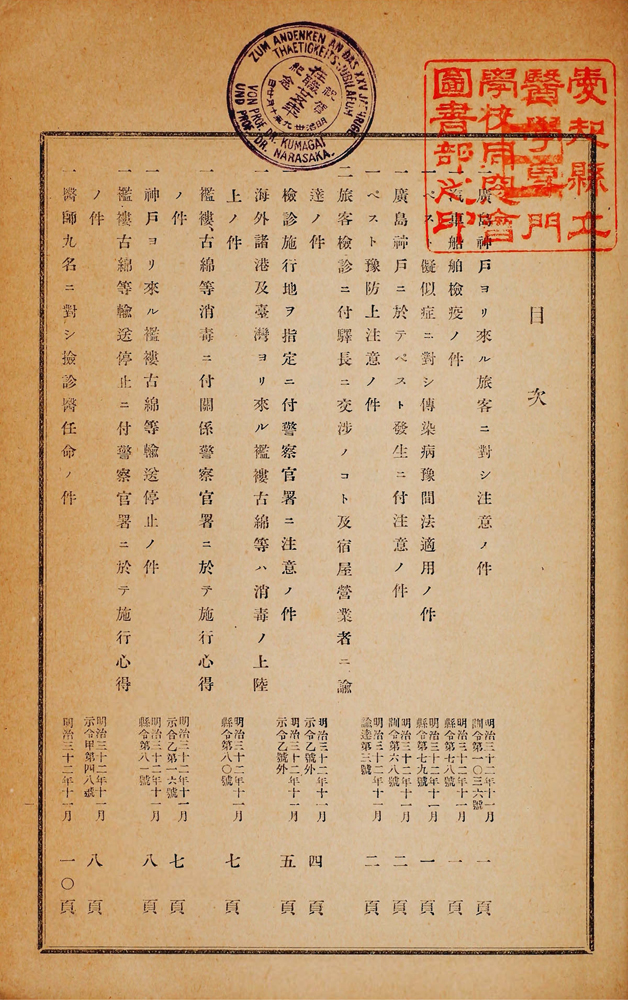 ZUM ANDENKEN AN DAS XXV JÄHRIGE
THAETIGKEITS-JUBILAEUM
VON PROF. DR. KUMAGAI
UND PROF. DR. NARASAKA.
祝
在職廿五年
紀
金
愛知縣立
醫學專門
學校同窓會
圖書部之印
目次
一廣島神戸ヨリ來ル旅客ニ對シ注意ノ件
訓令第一〇三六號
明治三十二年十一月
一頁
一汽車船舶檢疫ノ件
縣令第七八號
明治三十二年十一月
一頁
一ペスト擬似症ニ對シ傳染病豫防法適用ノ件
縣令第七九號
明治三十二年十一月
一頁
一廣島神戸ニ於テペスト發生ニ付注意ノ件
訓令第六八號
明治三十二年十一月
二頁
一ペスト豫防上注意ノ件
諭達第三號
明治三十二年十一月
二頁
一旅客檢診ニ付驛長ニ交渉ノコト及宿屋營業者ニ諭
達ノ件
示令乙號外
明治三十二年十一月
四頁
一檢診施行地ヲ指定ニ付警察官署ニ注意ノ件
示令乙號外
明治三十二年十一月
五頁
一海外諸港及臺灣ヨリ來ル襤褸古綿等ハ消毒ノ上陸
上ノ件
縣令第八〇號
明治三十二年十一月
七頁
一襤褸、古綿等消毒ニ付關係警察官署ニ於テ施行心得
ノ件
示令乙第一六號
明治三十二年十一月
七頁
一神戸ヨリ來ル襤褸古綿等輸送停止ノ件
縣令第八一號
明治三十二年十一月
八頁
一襤褸古綿等輸送停止ニ付警察官署ニ於テ施行心得
ノ件
示令甲第四八號
明治三十二年十一月
八頁
一醫師九名ニ對シ撿診醫任命ノ件
明治三十二年十一月
一〇頁